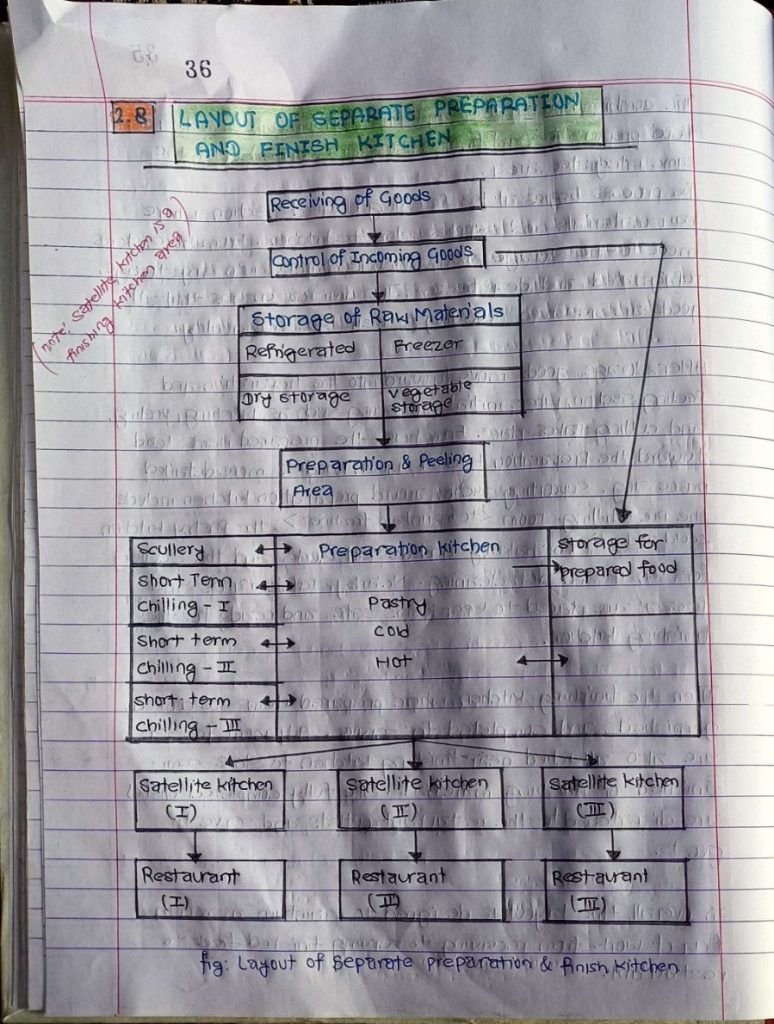 36
2.8 LAYOUT OF SEPARATE PREPARATION
AND FINISH KITCHEN
(note: Satellite kitchen is a
finishing kitchen area)
Receiving of Goods
Control of Incoming Goods
Storage of Raw Materials
Refrigerated Freezer
Dry storage vegetable
storage
Preparation & Peeling
Area
Scullery Preparation kitchen storage for
prepared food
short Term
chilling - I
Pastry
cold
short term
chilling - II
Hot
short term
chilling - III
Satellite kitchen Satellite kitchen Satellite kitchen
(I) (II) (III)
Restaurant Restaurant Restaurant
(I) (II) (III)
fig: Layout of Separate preparation & finish kitchen